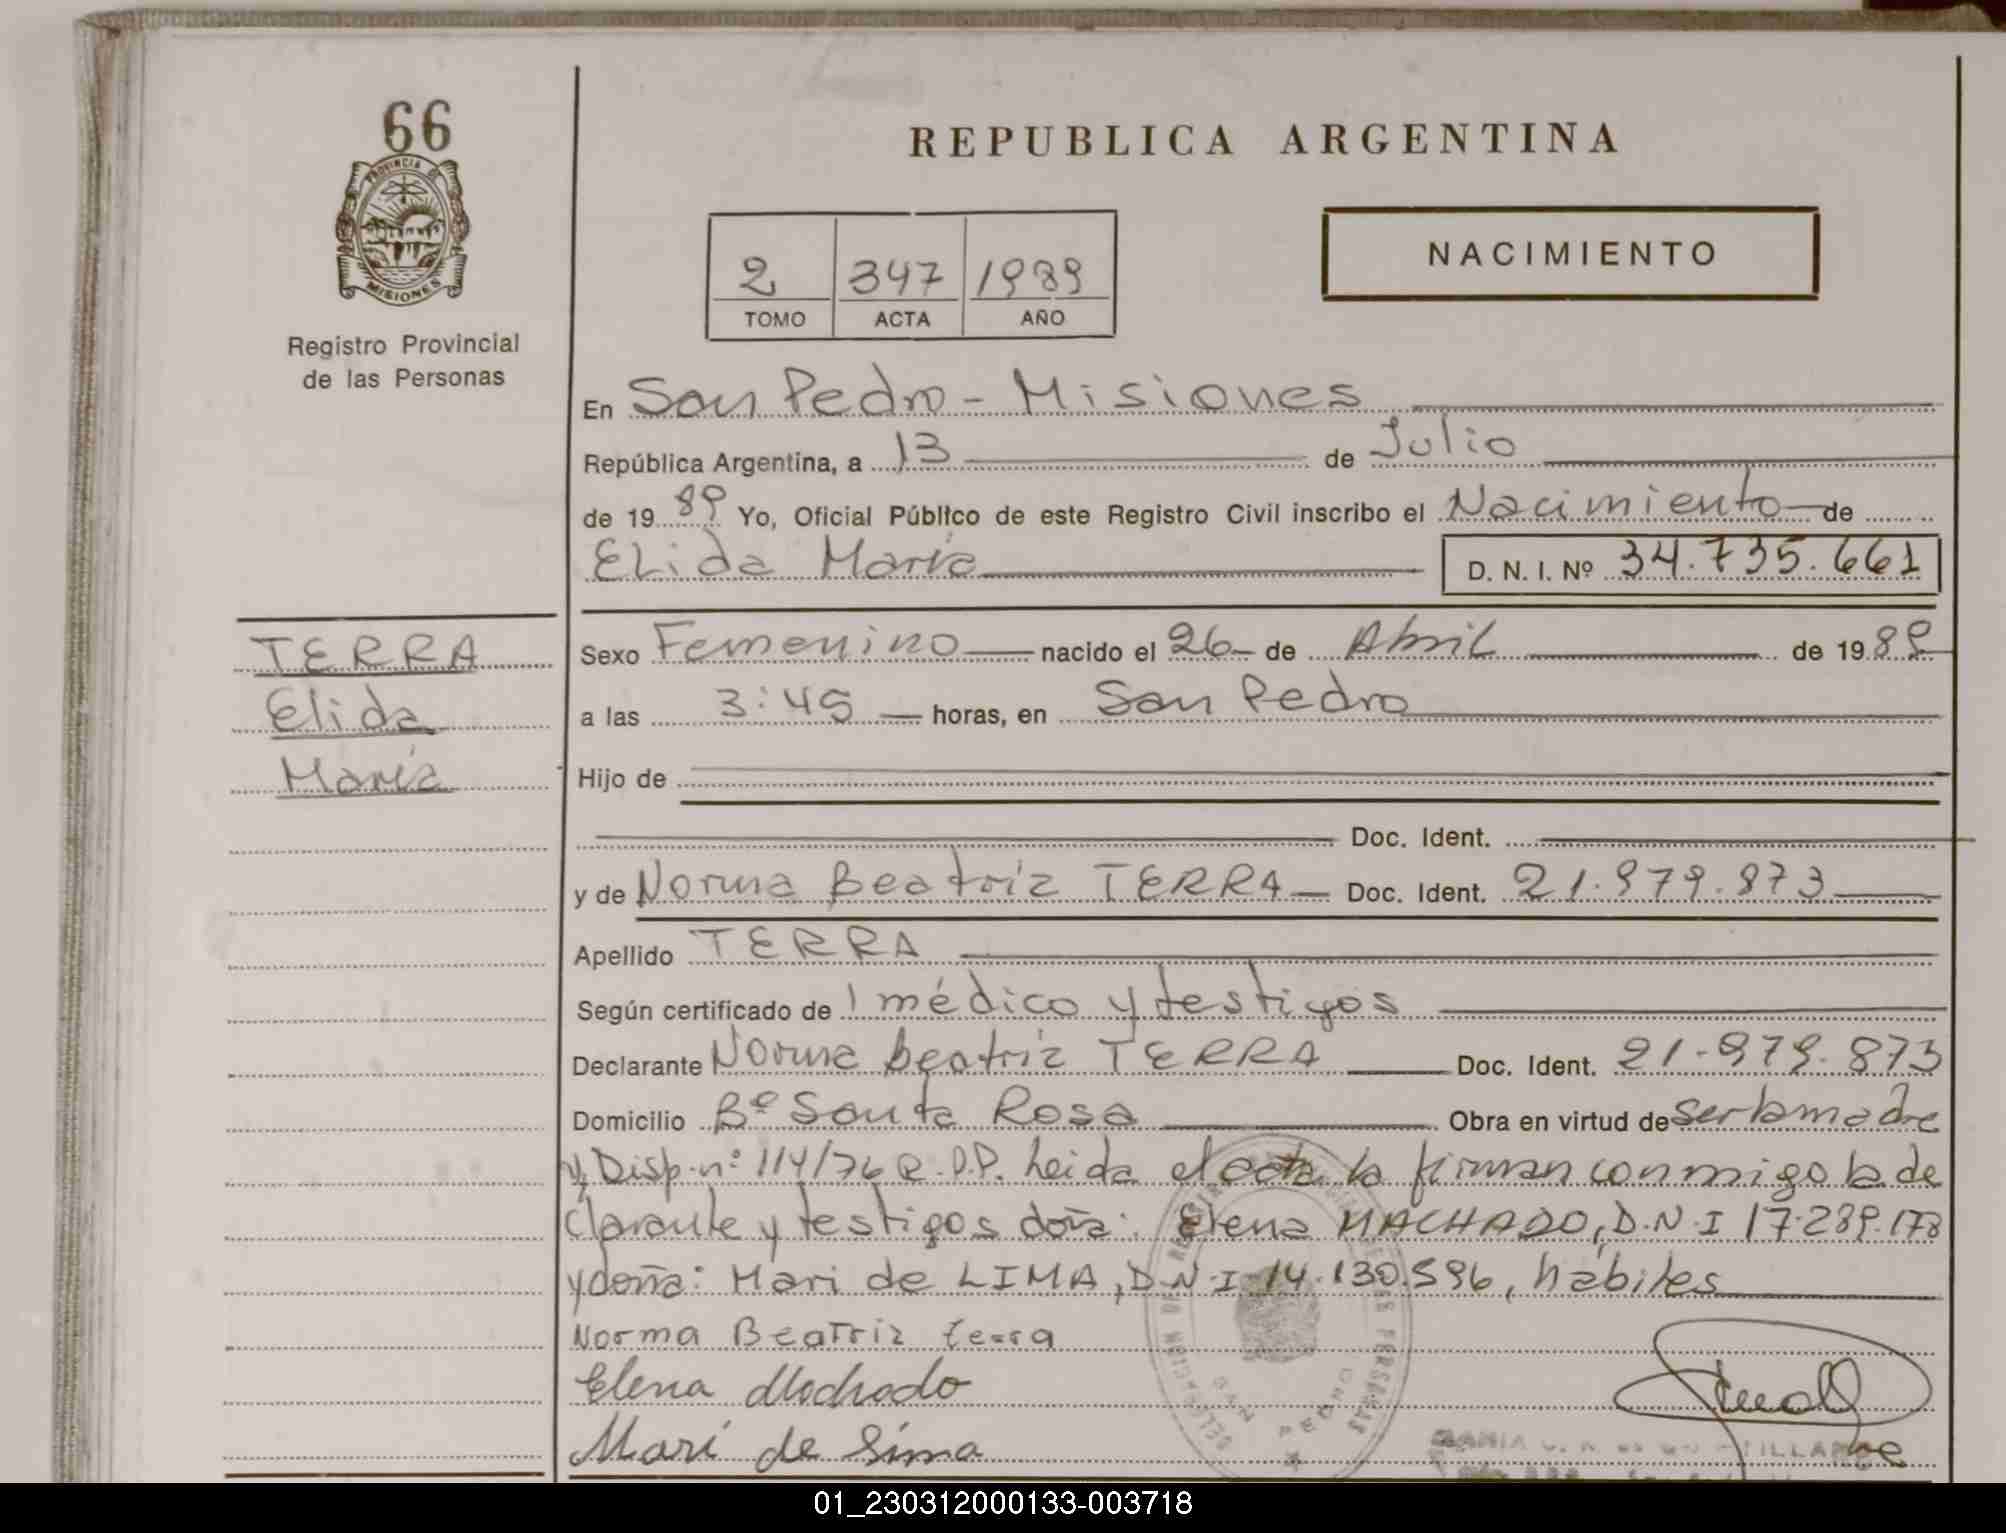 66
PROVINCIA DE
MISIONES
Registro Provincial
de las Personas
REPUBLICA ARGENTINA
2 347 1989
TOMO ACTA AÑO
NACIMIENTO
En San Pedro - Misiones
República Argentina, a 13 de Julio
de 1989 Yo, Oficial Público de este Registro Civil inscribo el Nacimiento de
Elida María D. N. I. Nº 34.735.661
TERRA
Elida
María
Sexo Femenino nacido el 26 de Abril de 1989
a las 3:45 horas, en San Pedro
Hijo de
Doc. Ident.
y de Norma Beatriz TERRA Doc. Ident. 21.979.873
Apellido TERRA
Según certificado de 1 médico y testigos
Declarante Norma Beatriz TERRA Doc. Ident. 21.979.873
Domicilio Bº Santa Rosa Obra en virtud de ser la madre
y Disp. nº 114/76 R.P.P. Leida el acta la firman conmigo la de
clarante y testigos doña: Elena MACHADO, D.N.I 17.289.178
y doña: Mari de LIMA, D.N.I 14.130.596, hábiles
Norma Beatriz terra
Elena Machado
Mari de Lima
DELEGACION DE REGISTRO DE LAS PERSONAS
SAN PEDRO
01_230312000133-003718